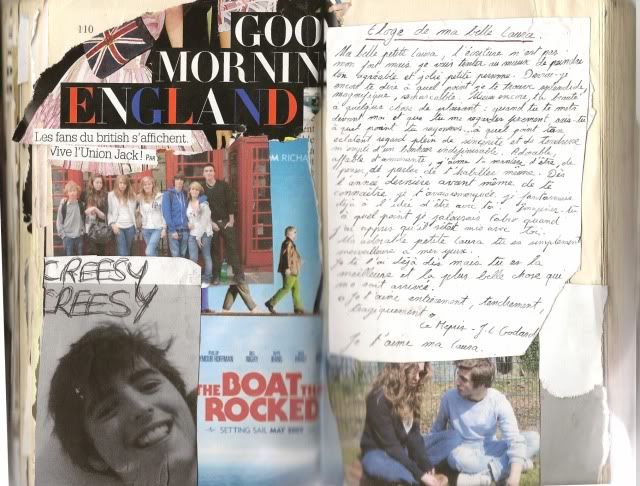 110
GOO
MORNIN
ENGLAND
Les fans du british s'affichent.
Vive l'Union Jack! PAR
M RICHAR
CREESY
CREESY
PHILIP
SEYMOUR HOFFMAN
BILL
NIGHY
RHYS
IFANS
NICK
FROST
THE BOAT THA
ROCKED
SETTING SAIL MAY 2009
Eloge de ma belle Laura.
Ma belle petite Laura, l'écriture n'est pas
mon fort mais je vais tenter au mieux de peindre
ton agréable et jolie petite personne. Devrais-je
encore te dire à quel point je te trouve splendide,
magnifique, remarquable. Mieux encore, la beauté
a quelque chose de quand tu te mets
devant moi et que tu me regardes fixement, sais-tu
à quel point tu rayonnes.. à quel point ton
éclatant regard plein de sincérité et de tendresse
m'emplit d'un bonheur indispensable. Adorable
affable d'amoureuse, j'aime ta manière d'être, de
penser, de parler, de t'habiller même. Dès
l'année dernière avant même de te
connaître, je t'avais remarquée, je fantasmais
déjà à l'idée d'être avec toi. Imagines-tu
à quel point je jalousais quand
j'ai appris qu'il s'était mis avec toi.
Mon adorable petite Laura tu es simplement
merveilleuse à mes yeux.
Je te l'ai déjà dis mais tu es la
meilleure et la plus belle chose qui
me soit arrivée.
« Je t'aime entièrement, tendrement,
tragiquement »
Le Mépris - J.L Godard
Je t'aime ma Laura.